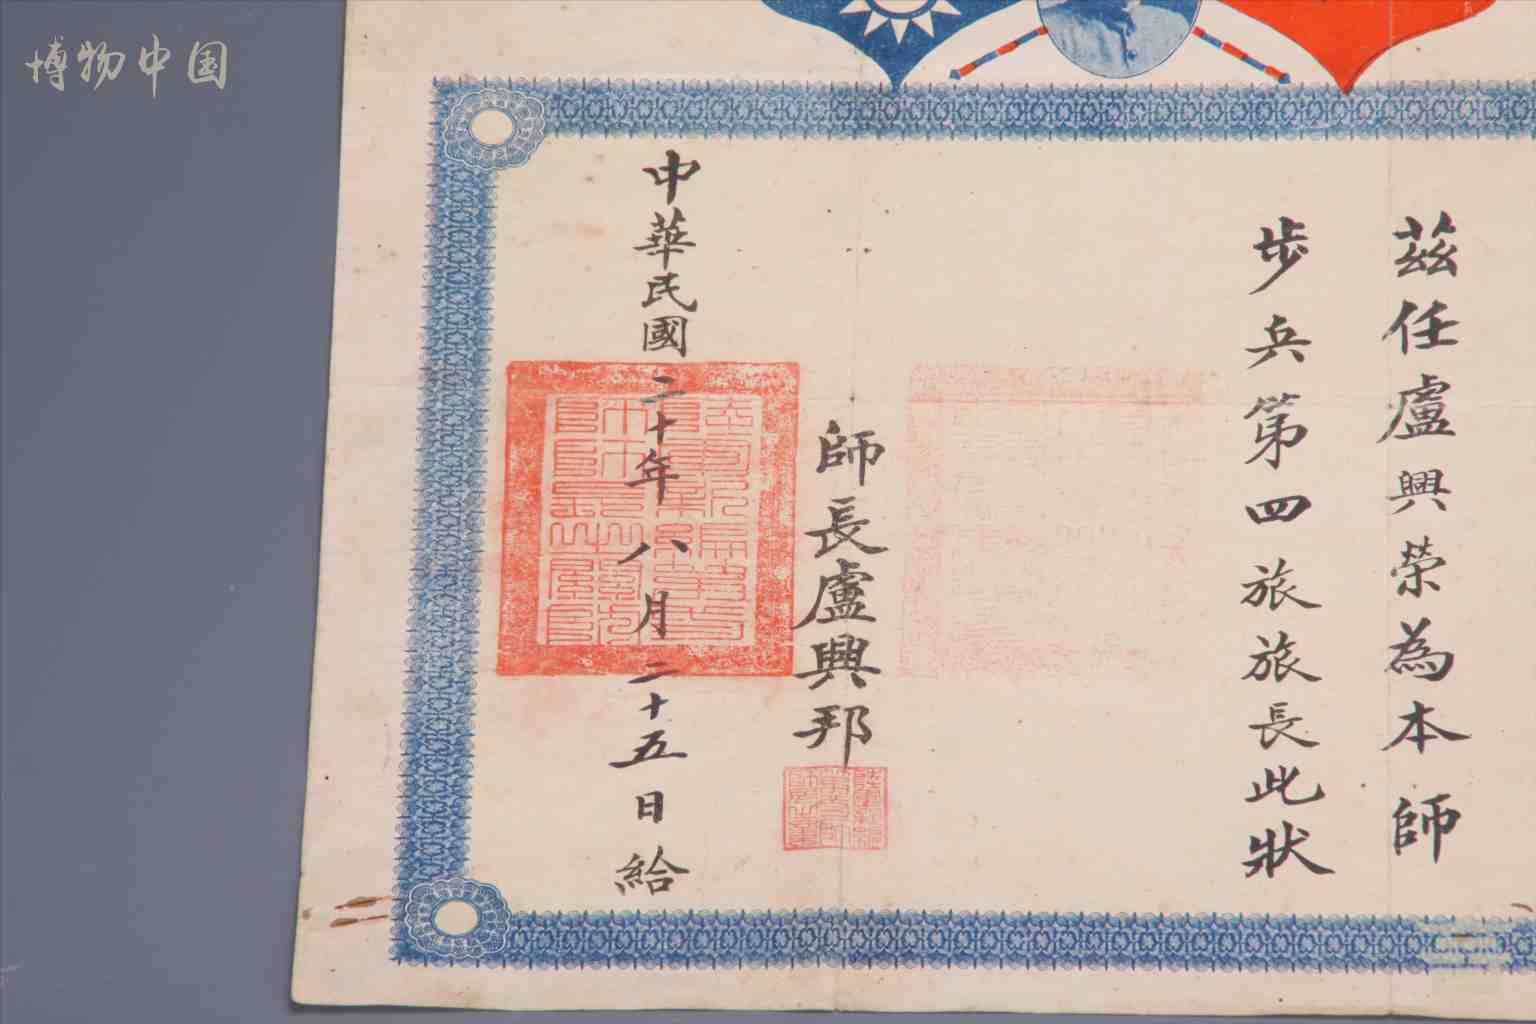 博物中国
茲任盧興榮為本師
步兵第四旅旅長此狀
師長盧興邦
中華民國二十年八月二十五日給